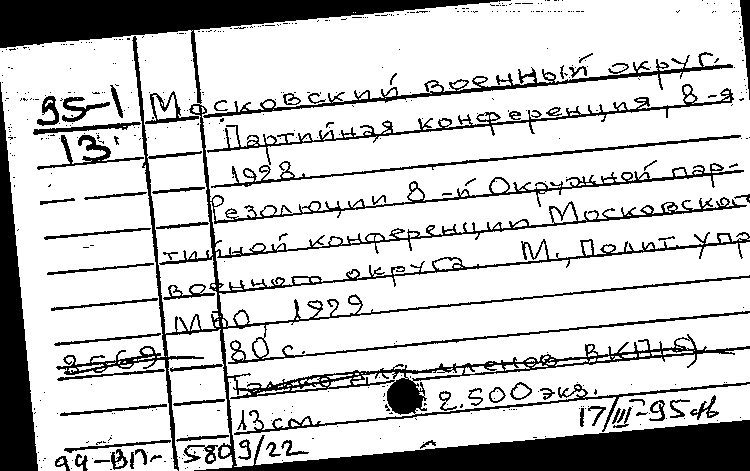 95-1
13
Московский военный округ.
Партийная конференция, 8-я.
1928.
Резолюции 8-й Окружной пар-
тийной конференции Московского
военного округа. М., Полит. упр
МВО, 1929.
80 с.
8569
Только для членов ВКП(б)
13 см. 2.500 экз.
17/III-95
94-ВП- 5809/22